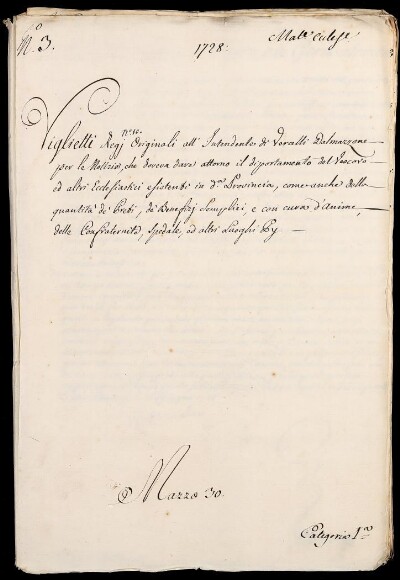 N.° 3.
1728.
Mat.e Eccles.e
n.° 10.
Viglietti Regj Originali all' Intendente di Vercelli Dalmazzone
per le Notizie, che doveva dare attorno il diportamento del Vescovo
ed altri Ecclesiastici esistenti in d.a Provincia, come anche della
quantità de' Preti, de' Benefizj semplici, e con cura d'Anime,
delle Confraternità, Spedale, ed altri Luoghi Pij
Mazzo 30.
Categoria I.a